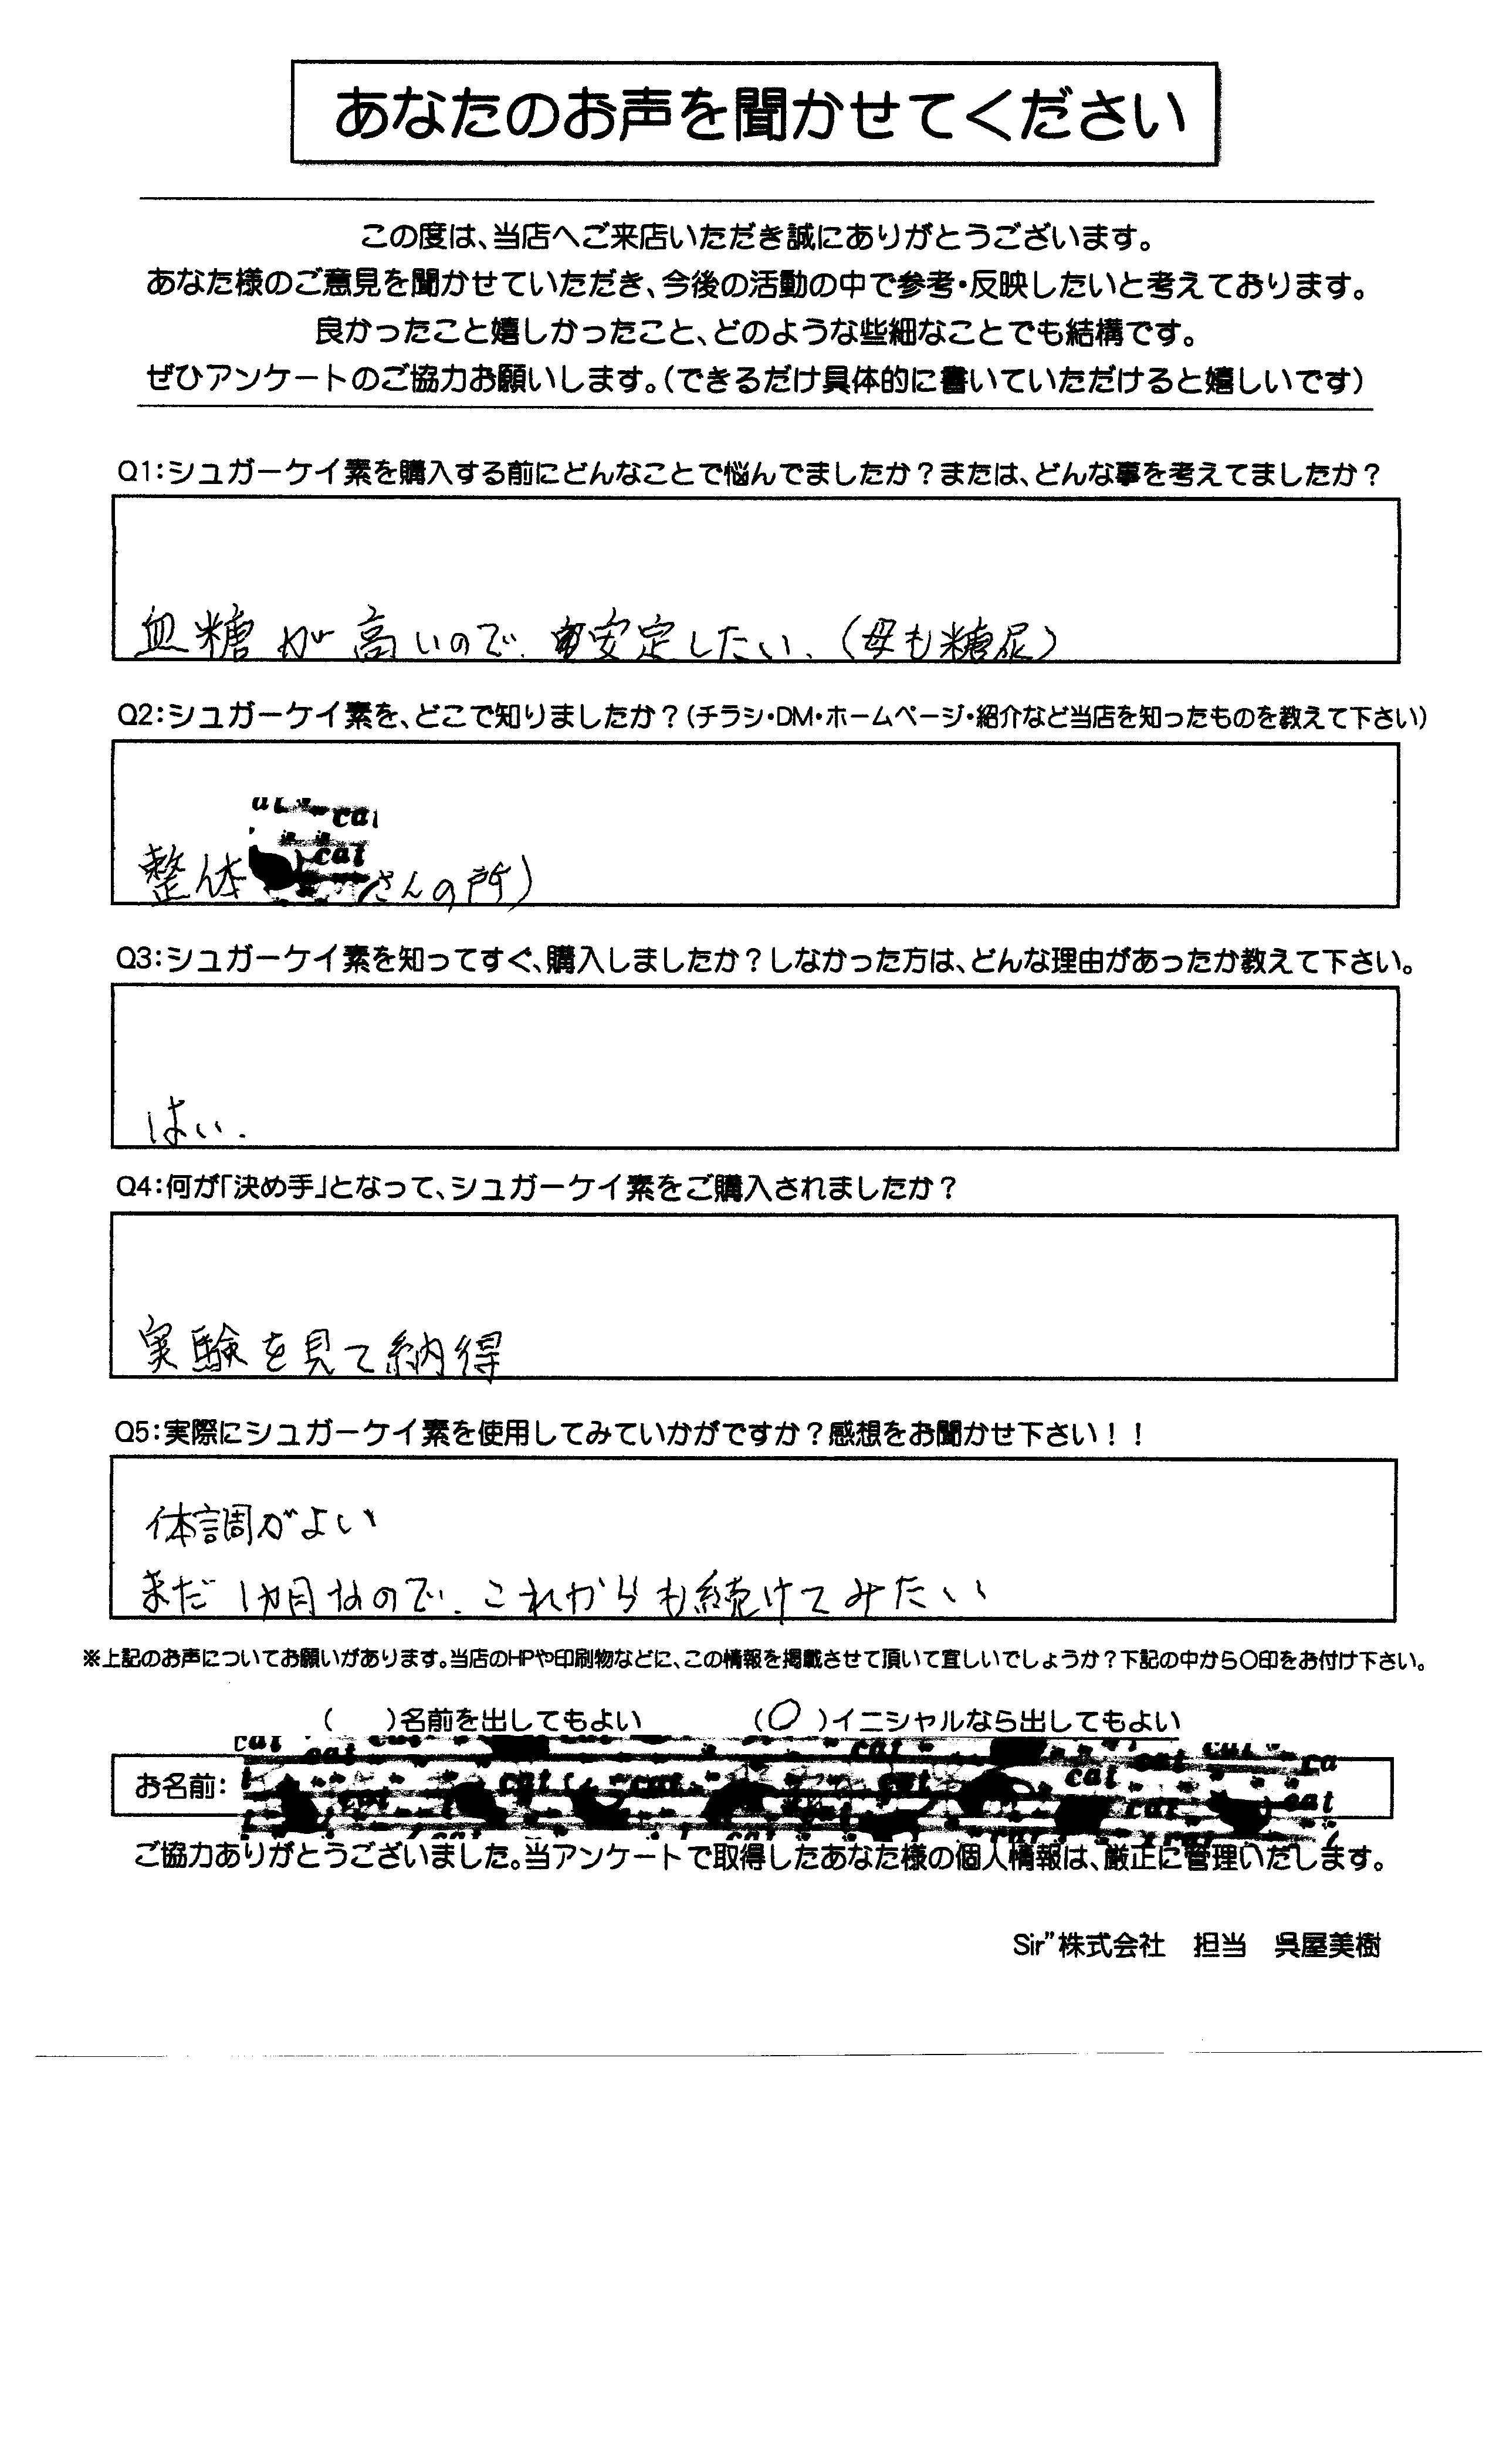 あなたのお声を聞かせてください
この度は、当店へご来店いただき誠にありがとうございます。
あなた様のご意見を聞かせていただき、今後の活動の中で参考・反映したいと考えております。
良かったこと嬉しかったこと、どのような些細なことでも結構です。
ぜひアンケートのご協力お願いします。（できるだけ具体的に書いていただけると嬉しいです）
Q1：シュガーケイ素を購入する前にどんなことで悩んでましたか？または、どんな事を考えてましたか？
血糖が高いので、安定したい、（母も糖尿）
Q2：シュガーケイ素を、どこで知りましたか？（チラシ・DM・ホームページ・紹介など当店を知ったものを教えて下さい）
cat
cat
整体 さんの所）
Q3：シュガーケイ素を知ってすぐ、購入しましたか？しなかった方は、どんな理由があったか教えて下さい。
はい．
Q4：何が「決め手」となって、シュガーケイ素をご購入されましたか？
実験を見て納得
Q5：実際にシュガーケイ素を使用してみていかがですか？感想をお聞かせ下さい！！
体調がよい
まだ1カ月なので、これからも続けてみたい
※上記のお声についてお願いがあります。当店のHPや印刷物などに、この情報を掲載させて頂いて宜しいでしょうか？下記の中から〇印をお付け下さい。
（　　）名前を出してもよい　　　（〇）イニシャルなら出してもよい
お名前：
ご協力ありがとうございました。当アンケートで取得したあなた様の個人情報は、厳正に管理いたします。
Sir”株式会社　担当　呉屋美樹